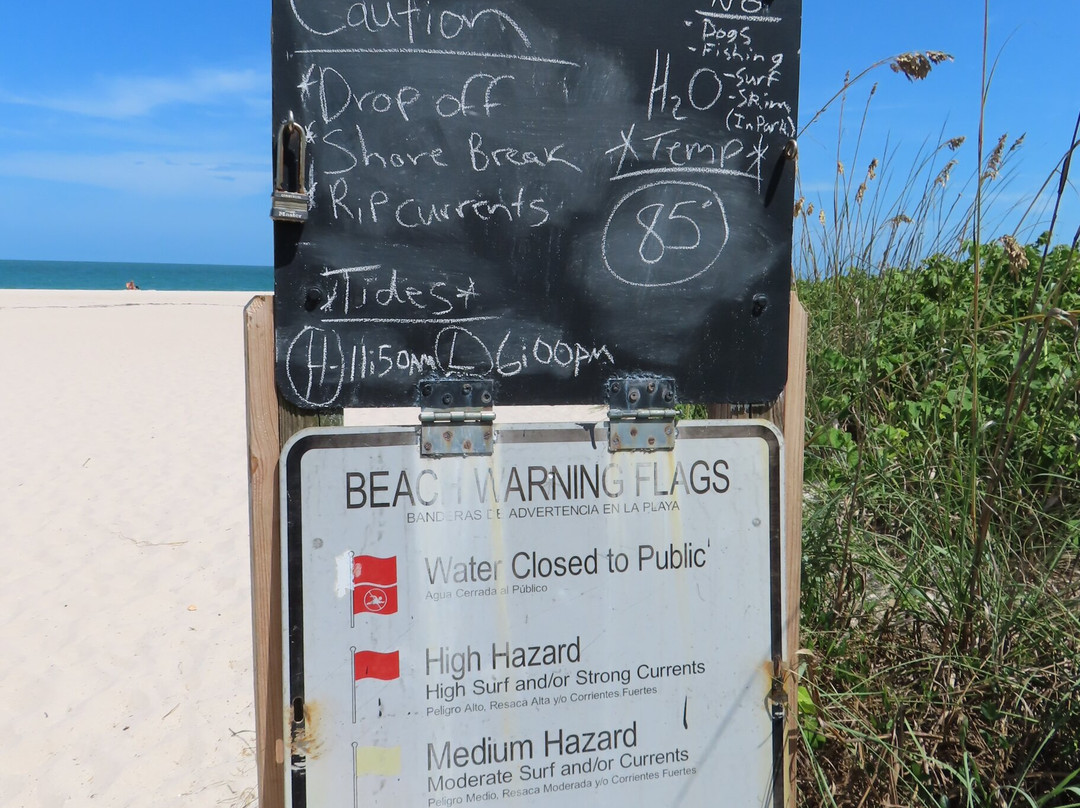 Caution
*Drop off
*Shore Break
*Rip currents
NO
-Dogs
-Fishing
-Surf
-Skim
(In Park)
H2O
*Temp*
85°
*Tides*
H-11:50AM L 6:00pm
BEACH WARNING FLAGS
BANDERAS DE ADVERTENCIA EN LA PLAYA
Water Closed to Public
Agua Cerrada al Público
High Hazard
High Surf and/or Strong Currents
Peligro Alto, Resaca Alta y/o Corrientes Fuertes
Medium Hazard
Moderate Surf and/or Currents
Peligro Medio, Resaca Moderada y/o Corrientes Fuertes